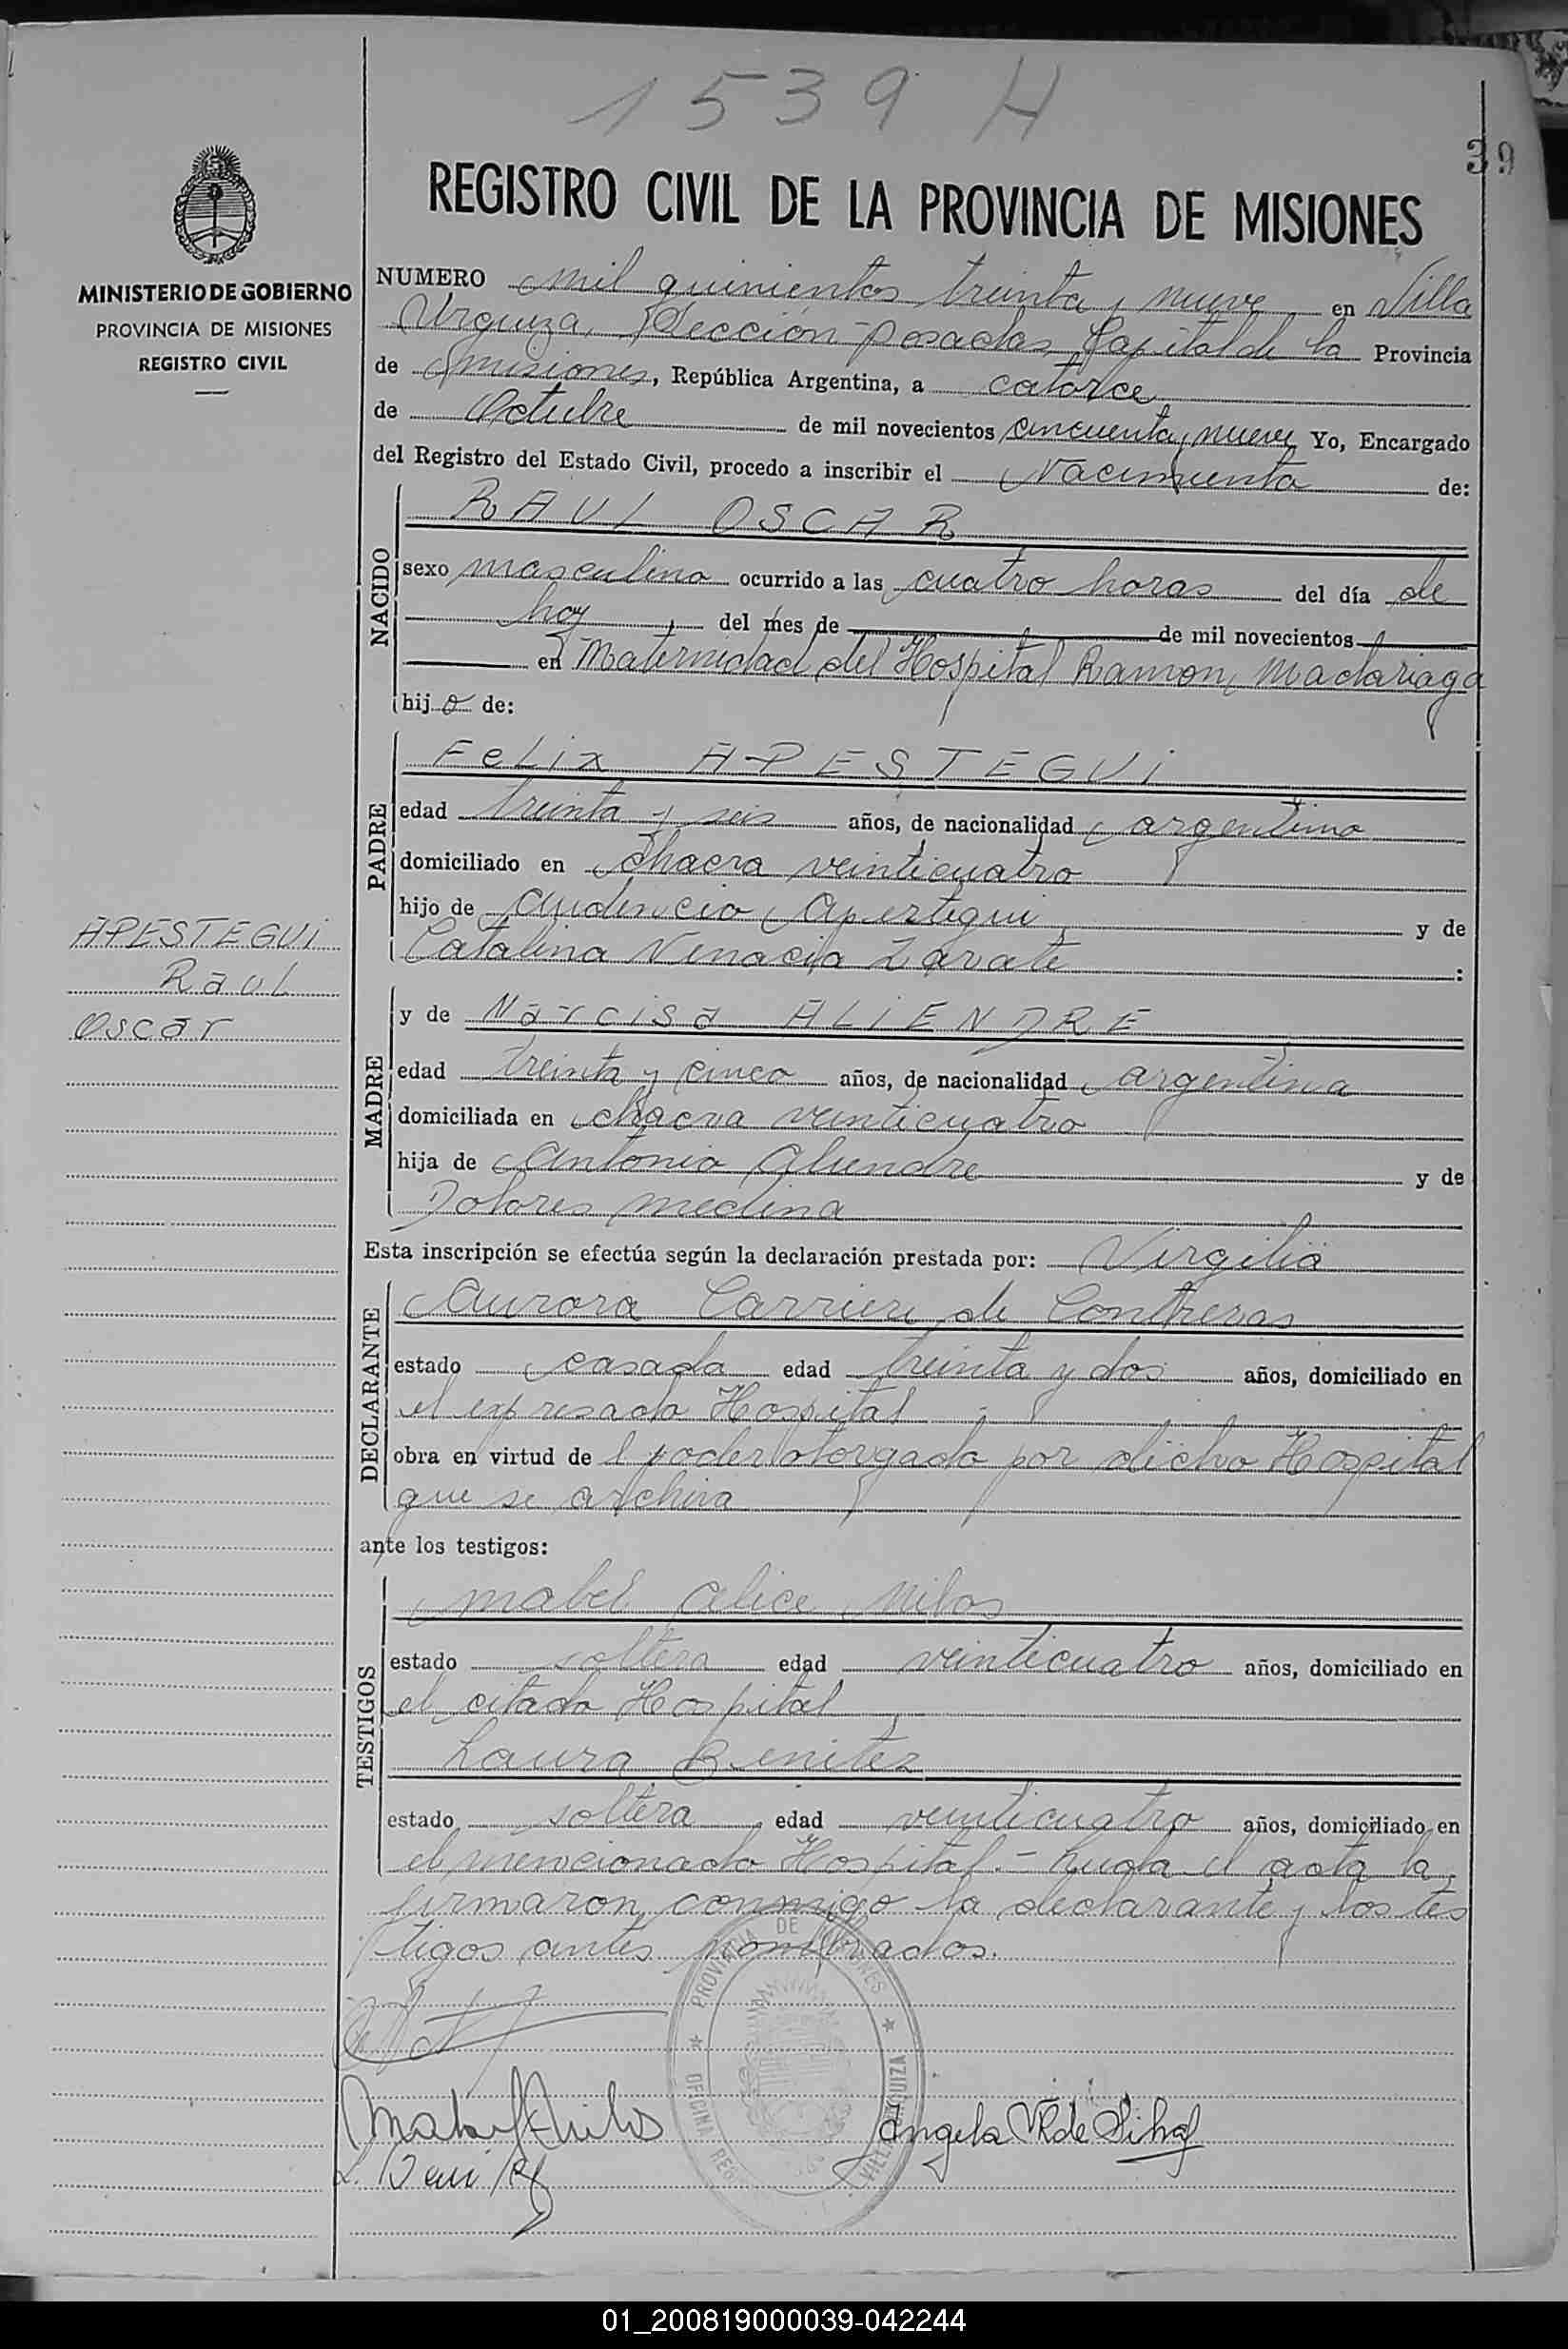 1539 H
39
REGISTRO CIVIL DE LA PROVINCIA DE MISIONES
MINISTERIO DE GOBIERNO
PROVINCIA DE MISIONES
REGISTRO CIVIL
NUMERO mil quinientos treinta y nueve en Villa
Urquiza, Sección Posadas, Capital de la Provincia
de Misiones, República Argentina, a catorce
de Octubre de mil novecientos cincuenta y nueve Yo, Encargado
del Registro del Estado Civil, procedo a inscribir el Nacimiento de:
NACIDO
RAUL OSCAR
sexo masculino ocurrido a las cuatro horas del día de
hoy, del mes de de mil novecientos
en Maternidad del Hospital Ramon Madariaga
hijo de:
PADRE
Felix APESTEGUi
edad treinta y seis años, de nacionalidad argentino
domiciliado en chacra veinticuatro
hijo de Audencio Apestegui y de
Catalina Zarate :
APESTEGUi
Raul
Oscar
MADRE
y de Narcisa ALiENDRE
edad treinta y cinco años, de nacionalidad argentina
domiciliada en chacra veinticuatro
hija de Antonio Aliendre y de
Dolores Medina
Esta inscripción se efectúa según la declaración prestada por: Virgilia
DECLARANTE
Aurora Carrieri de Contreras
estado casada edad treinta y dos años, domiciliado en
el expresado Hospital
obra en virtud de l poder otorgado por dicho Hospital
que se archiva
ante los testigos:
TESTIGOS
Mabel Alice Milos
estado soltera edad veinticuatro años, domiciliado en
el citado Hospital
Laura Benitez
estado soltera edad veinticuatro años, domiciliado en
el mencionado Hospital.- el acta la
firmaron conmigo la declarante y los tes
tigos antes nombrados.
PROVINCIA DE MISIONES
OFICINA
VILLA URQUIZA
Angela de Silva
01_200819000039-042244